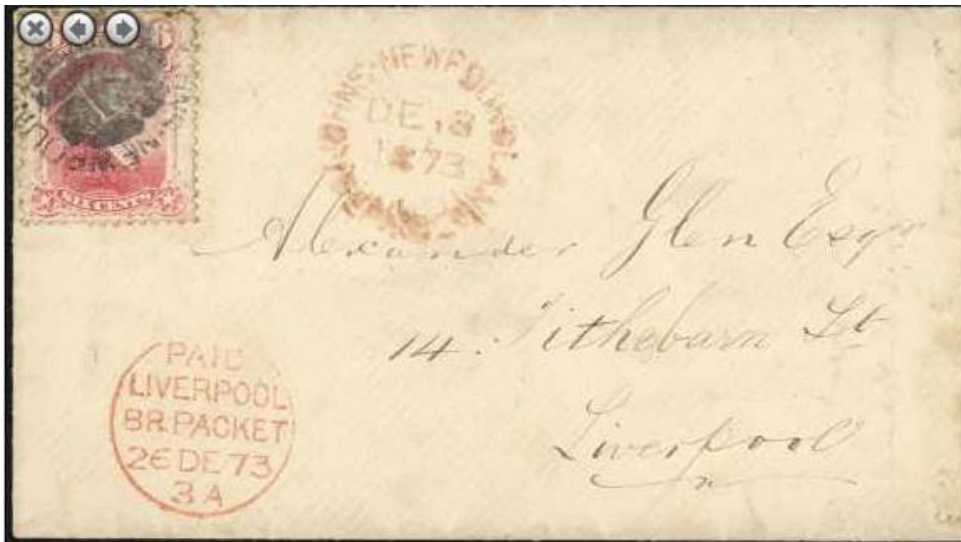 6
SIX CENTS
ST. JOHN'S NEWFOUNDLAND
DE 18
1873
Alexander Glen Esqr
14. Tithebarn St
Liverpool
PAID
LIVERPOOL
BR. PACKET
26 DE 73
3 A